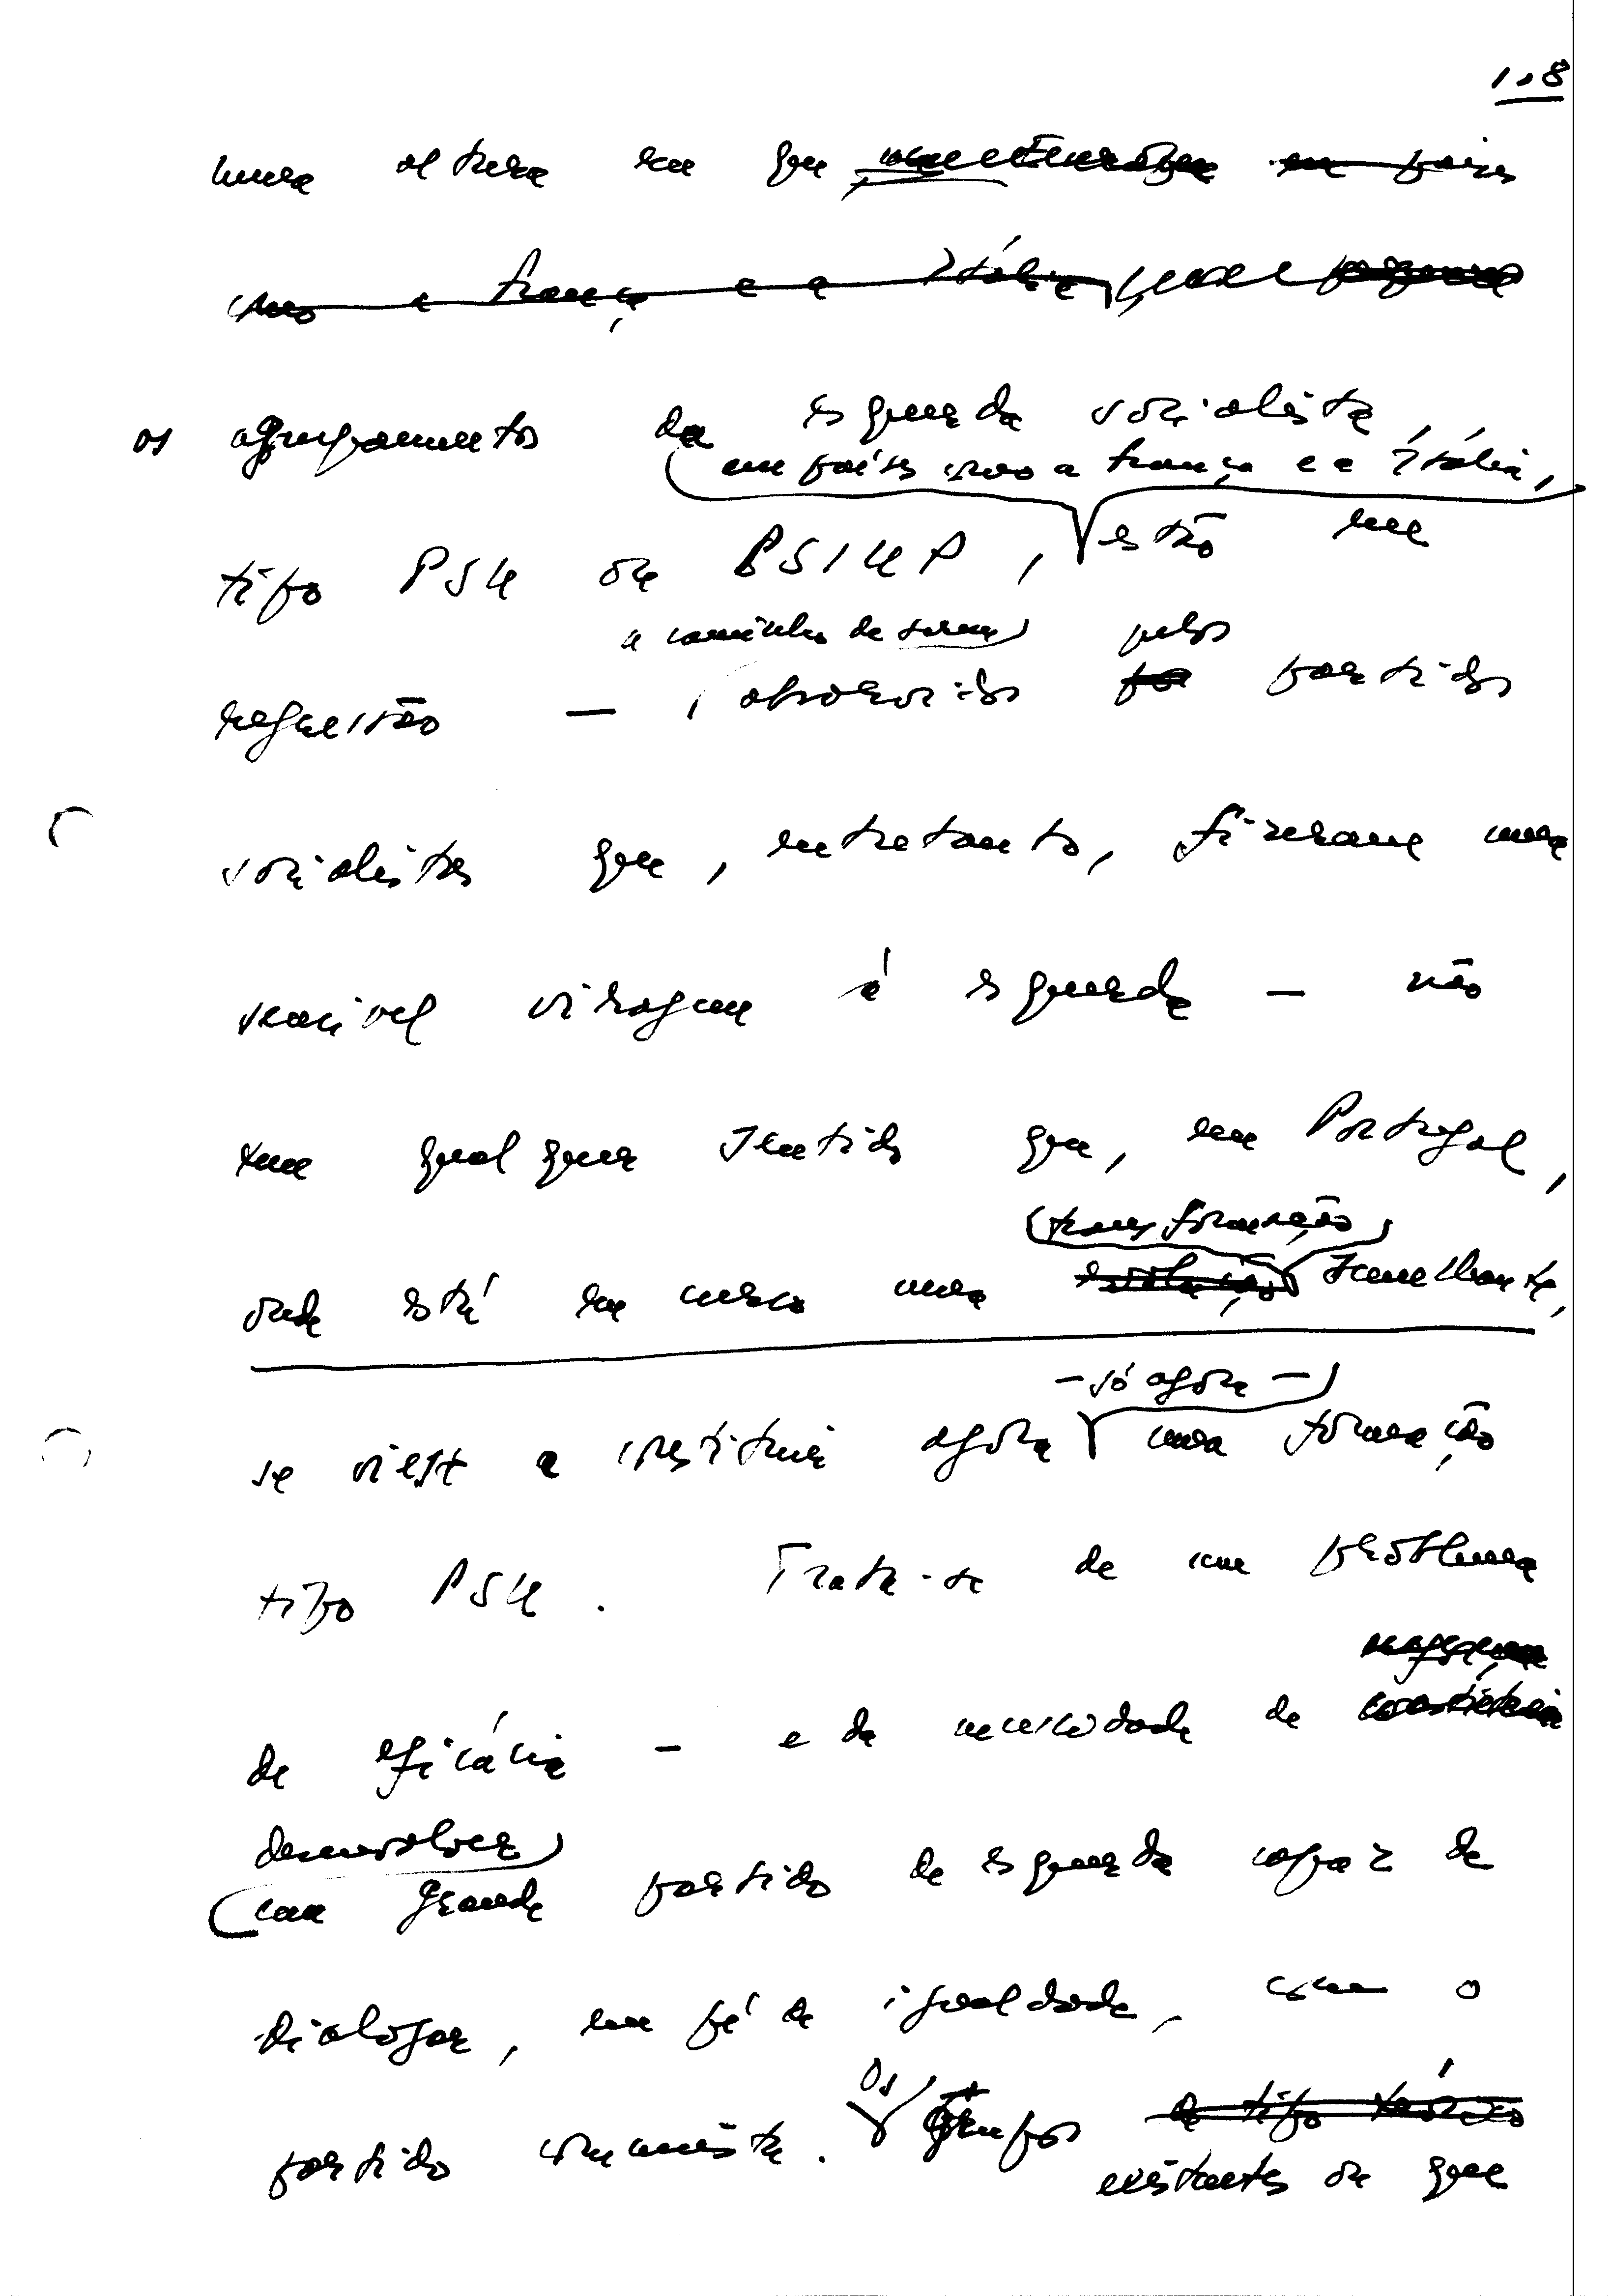 1.8
numa altura em que em países
como a França e a Itália,
os agrupamentos da esquerda socialista,
em países como a França e a Itália,
tipo PSU ou PSIUP, estão em
a caminho de serem pelos
regressão — absorvidos partidos
socialistas que, entretanto, fizeram uma
sensível viragem à esquerda — não
tem qualquer sentido que, em Portugal,
transformação
onde está em curso uma evolução semelhante,
— só agora —
se viesse a constituir agora uma formação
tipo PSU. Trata-se de um problema
de eficácia — e da necessidade de
desenvolver
um grande partido de esquerda capaz de
dialogar, em pé de igualdade, com o
Os
partido comunista. Grupos de tipo
existentes ou que